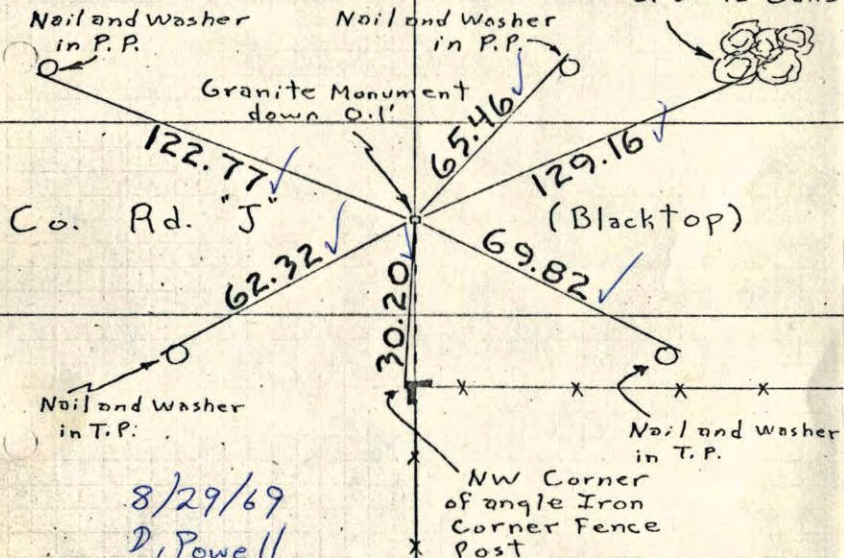 Nail and Washer
in P.P.
Nail and Washer
in P.P.
Granite Monument
down 0.1'
122.77
65.46
129.16
Co. Rd. "J"
(Blacktop)
62.32
30.20
69.82
Nail and Washer
in T.P.
Nail and Washer
in T.P.
NW Corner
of angle Iron
Corner Fence
Post
8/29/69
D. Powell